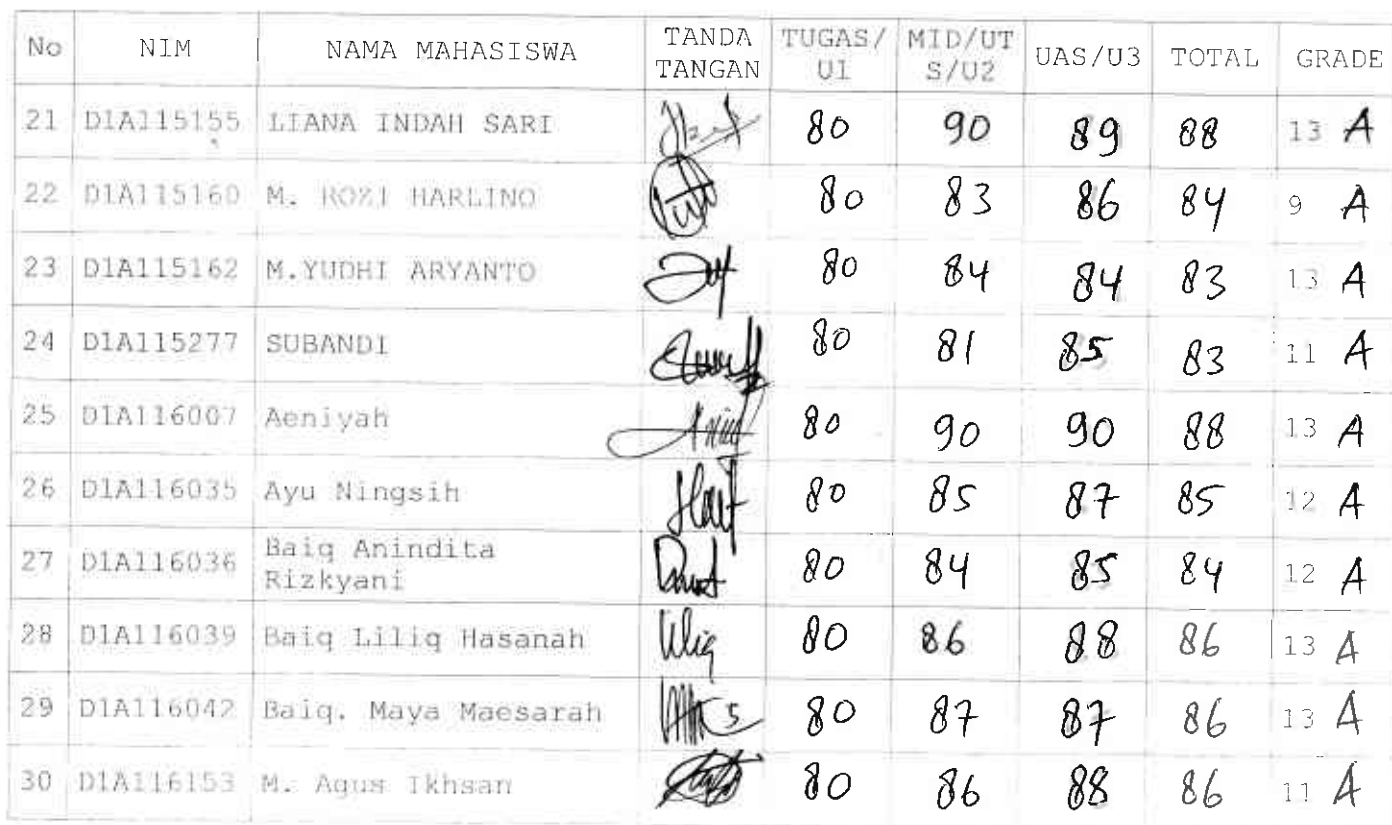 No NIM NAMA MAHASISWA TANDA TANGAN TUGAS/U1 MID/UTS/U2 UAS/U3 TOTAL GRADE
21 D1A115155 LIANA INDAH SARI 80 90 89 88 13 A
22 D1A115160 M. ROZI HARLINO 80 83 86 84 9 A
23 D1A115162 M.YUDHI ARYANTO 80 84 84 83 13 A
24 D1A115277 SUBANDI 80 81 85 83 11 A
25 D1A116007 Aeniyah 80 90 90 88 13 A
26 D1A116035 Ayu Ningsih 80 85 87 85 12 A
27 D1A116036 Baiq Anindita Rizkyani 80 84 85 84 12 A
28 D1A116039 Baiq Liliq Hasanah 80 86 88 86 13 A
29 D1A116042 Baiq. Maya Maesarah 80 87 87 86 13 A
30 D1A116153 M. Agus Ikhsan 80 86 88 86 11 A